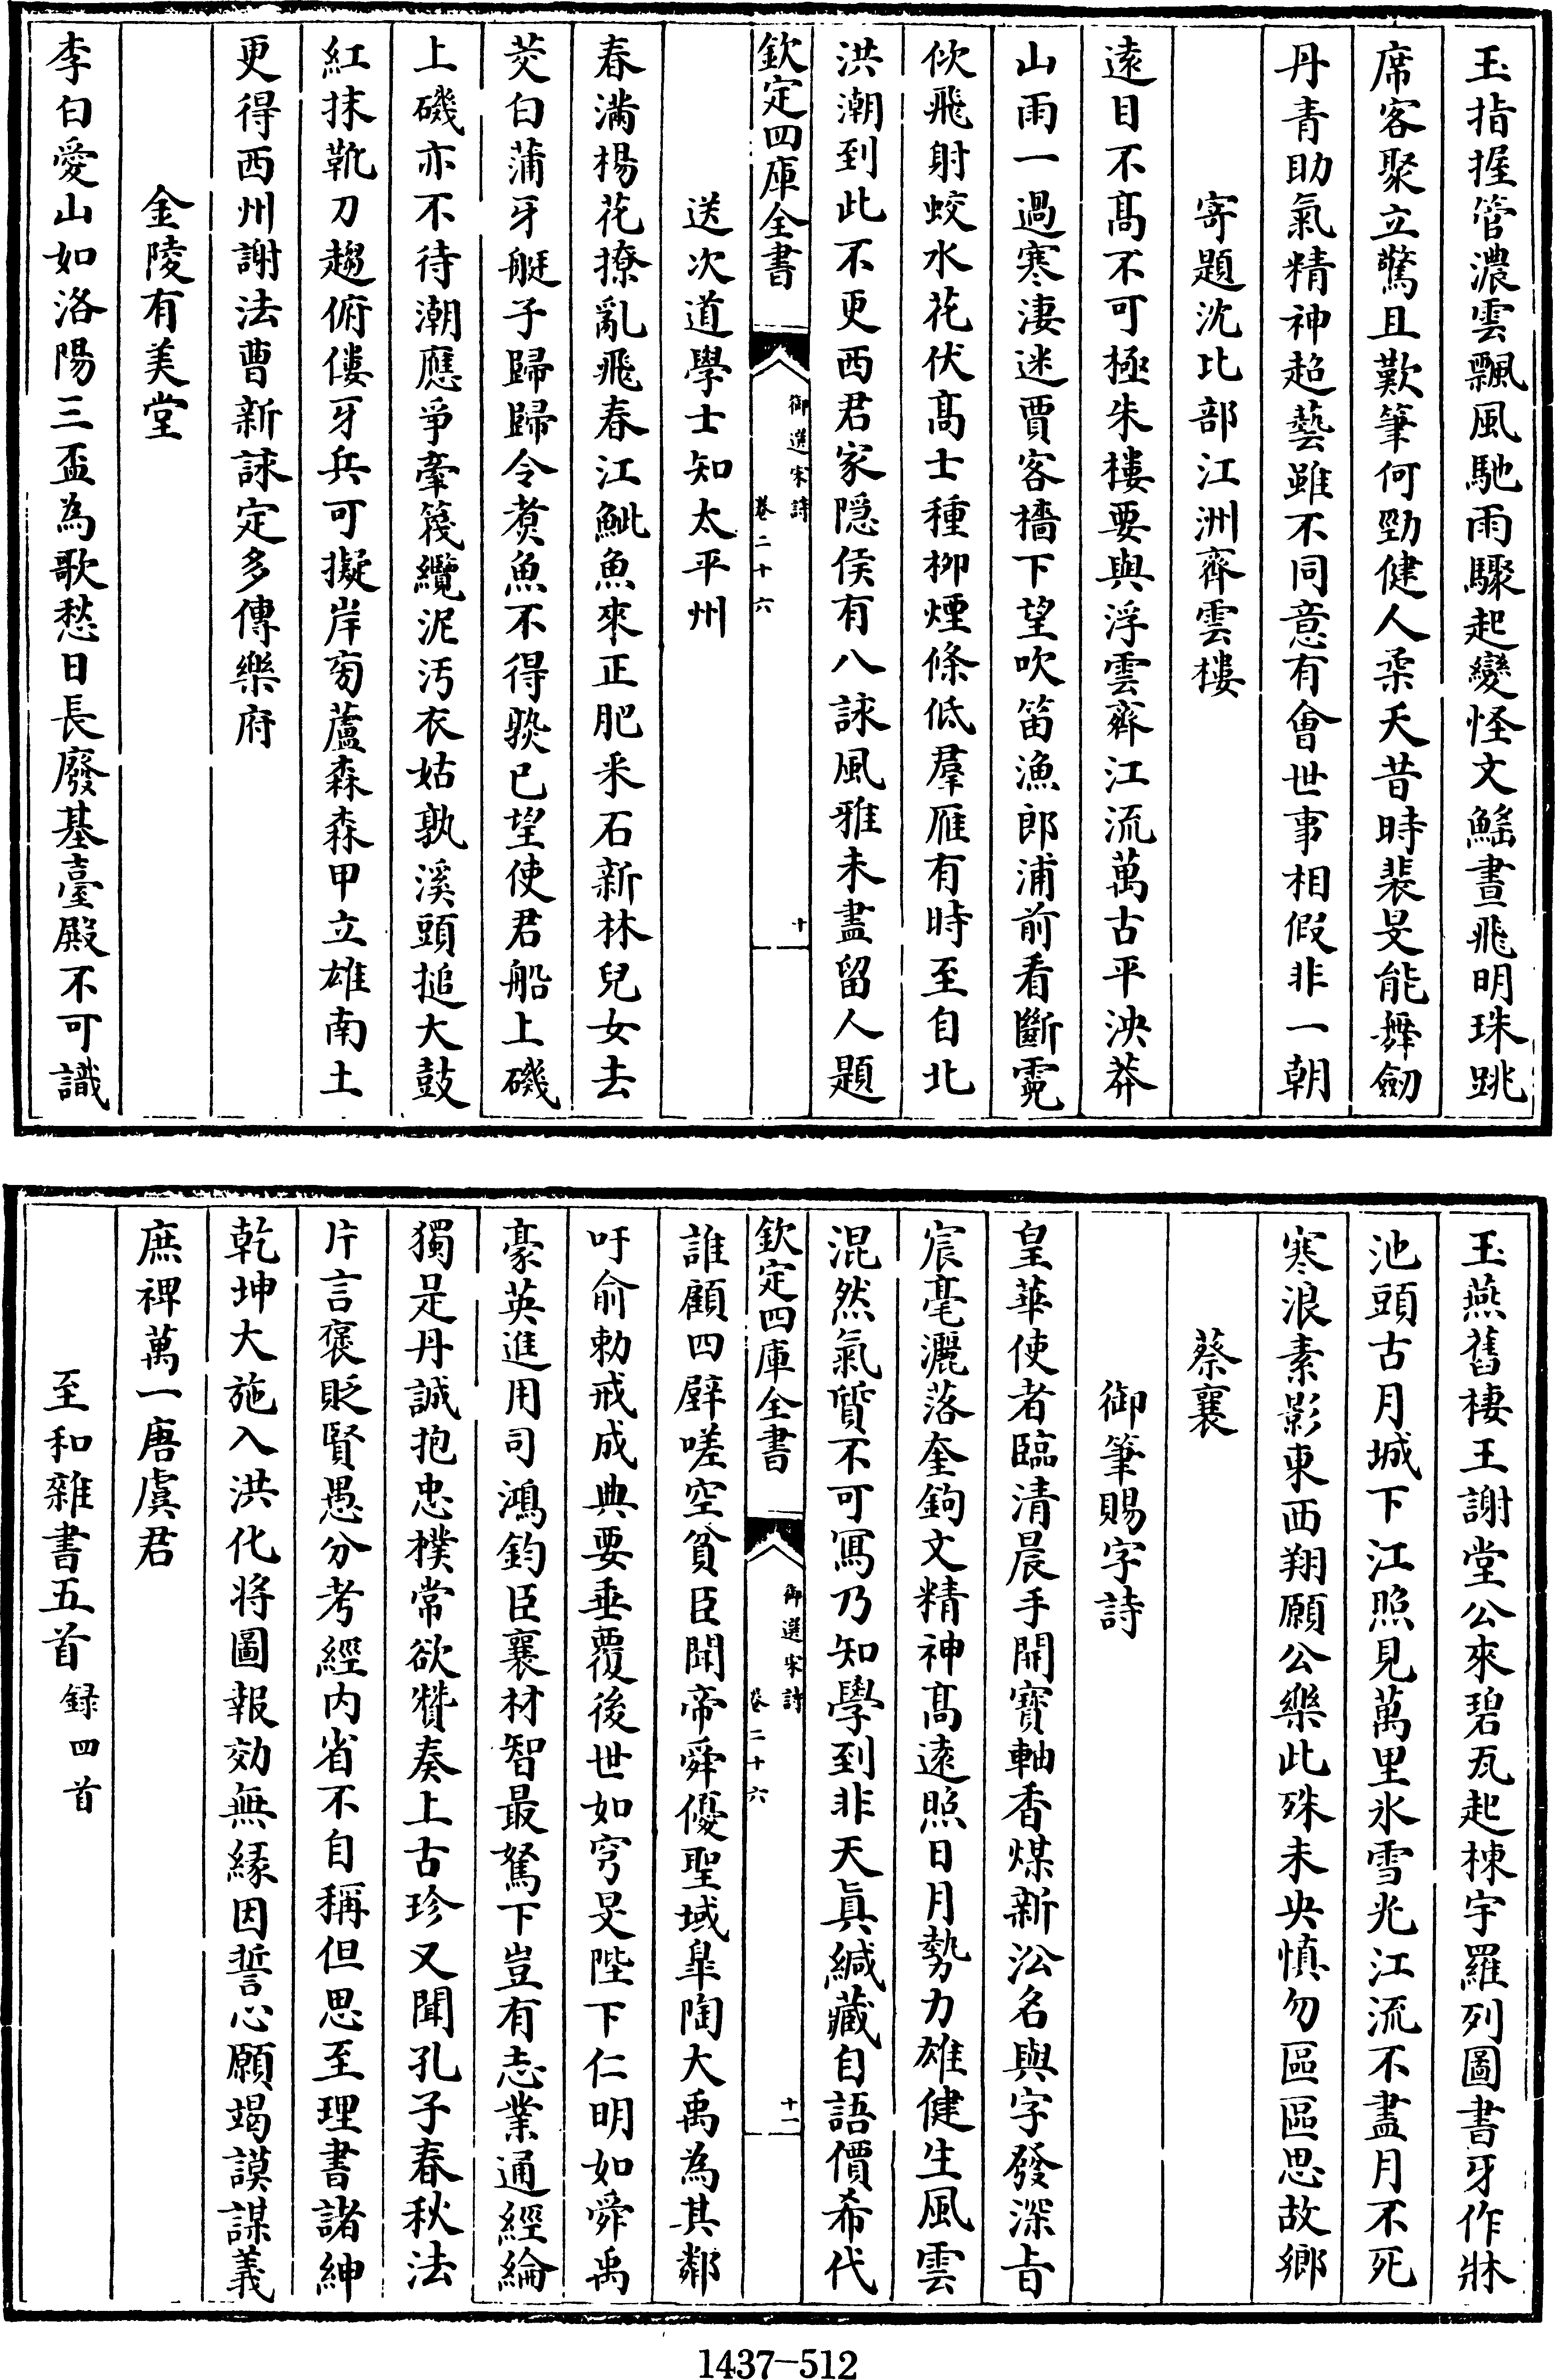 玉指握管濃雲飄風馳雨驟起變怪文鰩晝飛明珠跳
席客聚立驚且歎筆何勁健人柔夭昔時裴旻能舞劒
丹青助氣精神超藝雖不同意有會世事相假非一朝
寄題沈比部江洲齊雲樓
遠目不髙不可極朱樓要與浮雲齊江流萬古平泱莽
山雨一過寒淒迷賈客檣下望吹笛漁郎浦前看斷霓
佽飛射蛟水花伏髙士種栁煙條低羣雁有時至自北
洪潮到此不更西君家隠侯有八詠風雅未盡留人題
欽定四庫全書
御選宋詩
卷二十六
十
送次道學士知太平州
春滿楊花撩亂飛春江鮆魚來正肥釆石新林兒女去
芡白蒲牙艇子歸歸令煑魚不得歟已望使君船上磯
上磯亦不待潮應爭牽䈴纜泥汚衣姑孰溪頭搥大鼓
紅抹靴刀趨俯僂牙兵可擬岸菊蘆森森甲立雄南土
更得西州謝法曹新詠定多傳樂府
金陵有美堂
李白愛山如洛陽三盃為歌愁日長廢基臺殿不可識
玉燕舊棲王謝堂公來碧瓦起棟宇羅列圖書牙作牀
池頭古月城下江照見萬里氷雪光江流不盡月不死
寒浪素影東西翔願公樂此殊未央慎勿區區思故鄉
蔡襄
御筆賜字詩
皇華使者臨清晨手開寶軸香煤新㳂名與字發深㫖
宸毫灑落奎鉤文精神髙遠照日月勢力雄健生風雲
混然氣質不可寫乃知學到非天眞緘藏自語價希代
欽定四庫全書
御選宋詩
卷二十六
十一
誰顧四壁嗟空貧臣聞帝舜優聖域臯陶大禹為其鄰
吁俞勅戒成典要垂覆後世如穹旻陛下仁明如舜禹
豪英進用司鴻鈞臣襄材智最駑下豈有志業通經綸
獨是丹誠抱忠樸常欲贊奏上古珍又聞孔子春秋法
片言褒貶賢愚分考經内省不自稱但思至理書諸紳
乾坤大施入洪化将圖報効無緣因誓心願竭謨謀義
庶禆萬一唐虞君
至和雜書五首録四首
1437-512